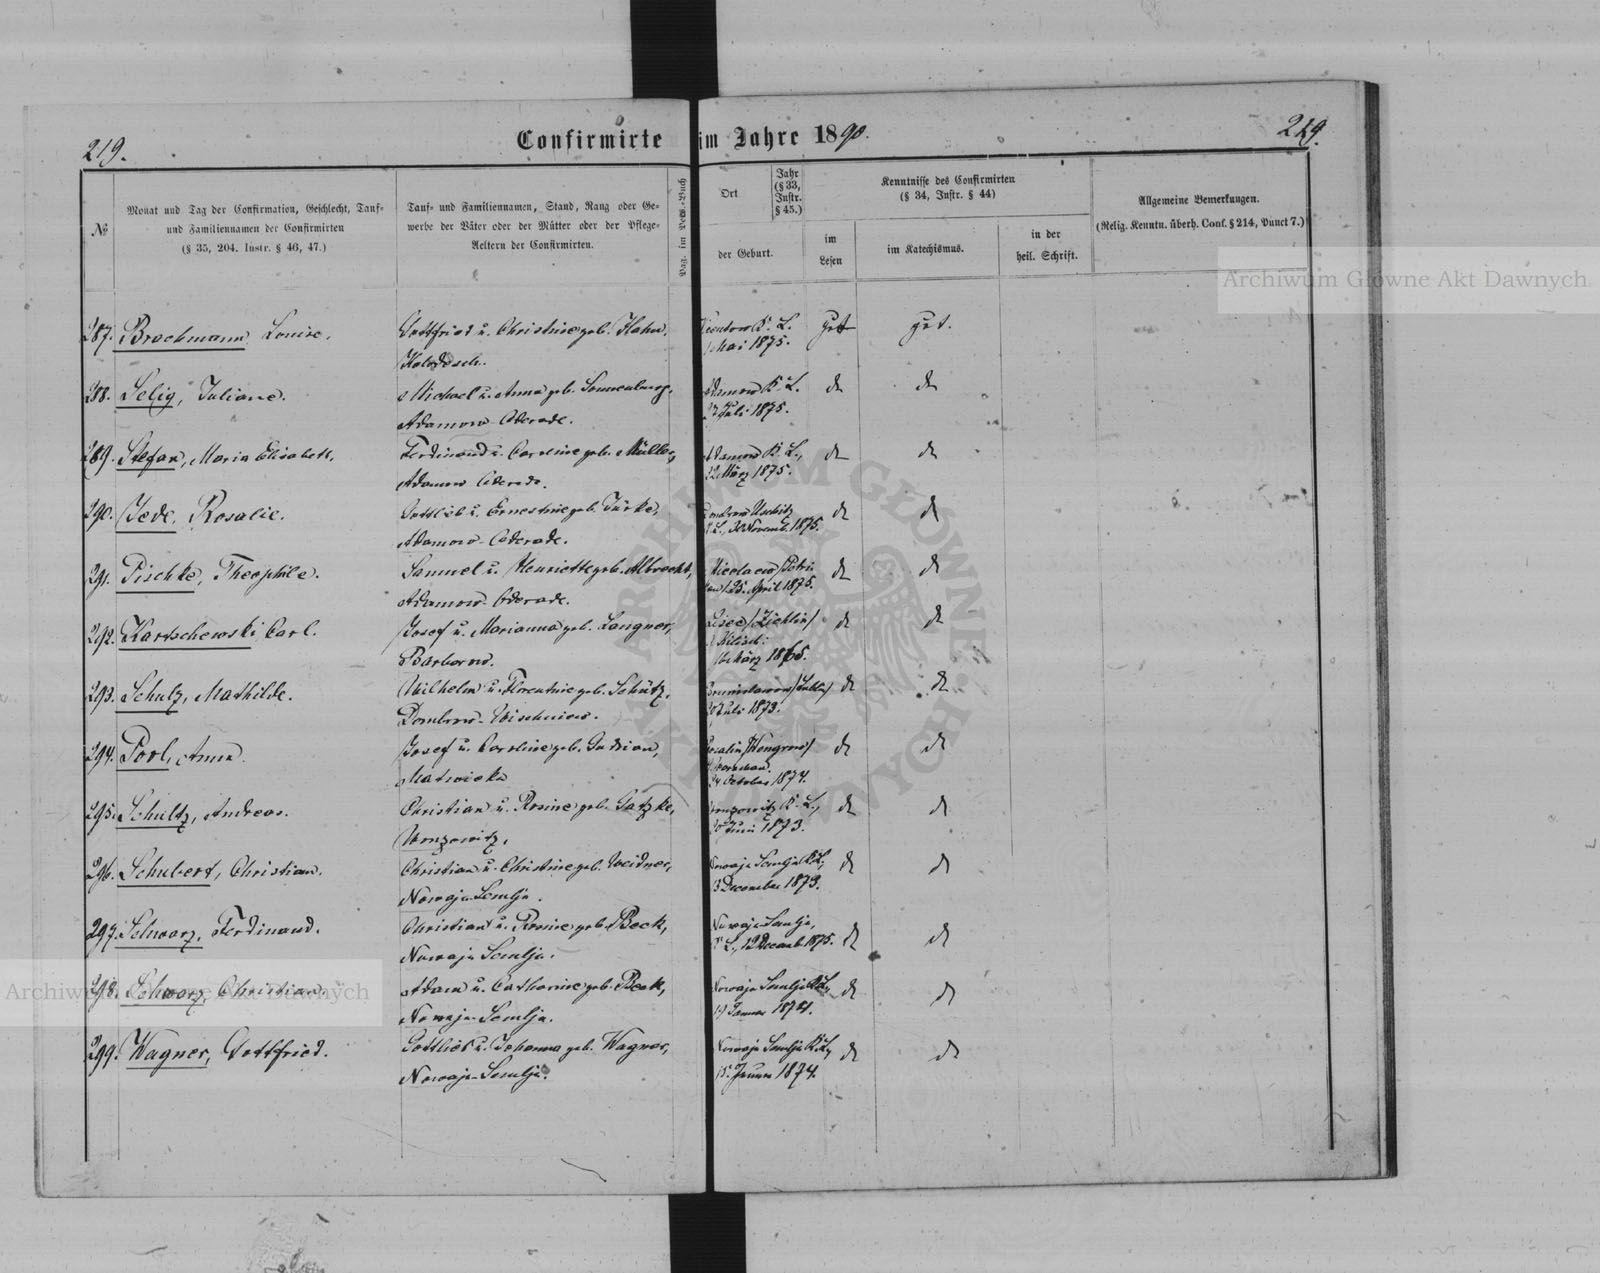 219.
Confirmirte im Jahre 1890.
219.
№
Monat und Tag der Confirmation, Geschlecht, Tauf-
und Familiennamen der Confirmirten
(§ 35, 204. Instr. § 46, 47.)
Tauf- und Familiennamen, Stand, Rang oder Ge-
werbe der Väter oder der Mütter oder der Pflege-
Aeltern der Confirmirten.
Pag. im Pers.-Buch
Ort
Jahr
(§ 33,
Instr.
§ 45.)
der Geburt.
Kenntnisse des Confirmirten
(§ 34, Instr. § 44)
im
Lesen
im Katechismus.
in der
heil. Schrift.
Allgemeine Bemerkungen.
(Relig. Kenntn. überh. Conf. § 214, Punct 7.)
Archiwum Główne Akt Dawnych
287. Brackmann Louise. Gottfried u. Christine geb. Hahn. K. L. gut gut.
Kolodesch. Mai 1875.
288. Selig, Juliane. Michael u. Anna geb. Sonnenburg, Adamow K. L. do do
Adamow-Oderade. Juli 1875.
289. Stefan, Maria Elisabeth. Ferdinand u. Caroline geb. Müller, Adamow K. L., do do
Adamow Oderade. März 1875.
290. Jede, Rosalie. Gottlieb u. Ernestine geb. Türke, do do
Adamow-Oderade. K. L., 30 Novemb. 1875.
291. Pischke, Theophile. Samuel u. Henriette geb. Albrecht, Nicolaew /Petri do do
Adamow-Oderade. 25. April 1875.
292. Kartschewski Carl. Josef u. Marianna geb. Langner, do do
Barborow. März 1865.
293. Schulz, Mathilde. Wilhelm u. Florentine geb. Schütz, do do
Dombrow-Wischniew. Juli 1873.
294. Pool, Anna. Josef u. Caroline geb. Gudrian, /Wengrow/ do do
Matwieika Warschau.
24 October 1874.
295. Schultz, Andreas. Christian u. Rosine geb. Gatzke, K. L., do do
Wonzowitz. Juni 1873.
296. Schubert, Christian. Christian u. Christine geb. Weidner, Nowaja Semlja K. L., do do
Nowaja-Semlja. December 1873.
297. Schwarz, Ferdinand. Christian u. Rosine geb. Beck, Nowaja-Semlja, do do
Nowaja Semlja. K. L., 12 Decemb. 1875.
298. Schwarz, Christian. Adam u. Catharine geb. Beck, Nowaja Semlja K. L., do do
Nowaja-Semlja. Januar 1874.
299. Wagner, Gottfried. Gottlieb u. Johanna geb. Wagner, Nowaja Semlja K. L., do do
Nowaja-Semlja. 15. Januar 1874.
Archiwum Główne Akt Dawnych
ARCHIWUM GŁÓWNE AKT DAWNYCH